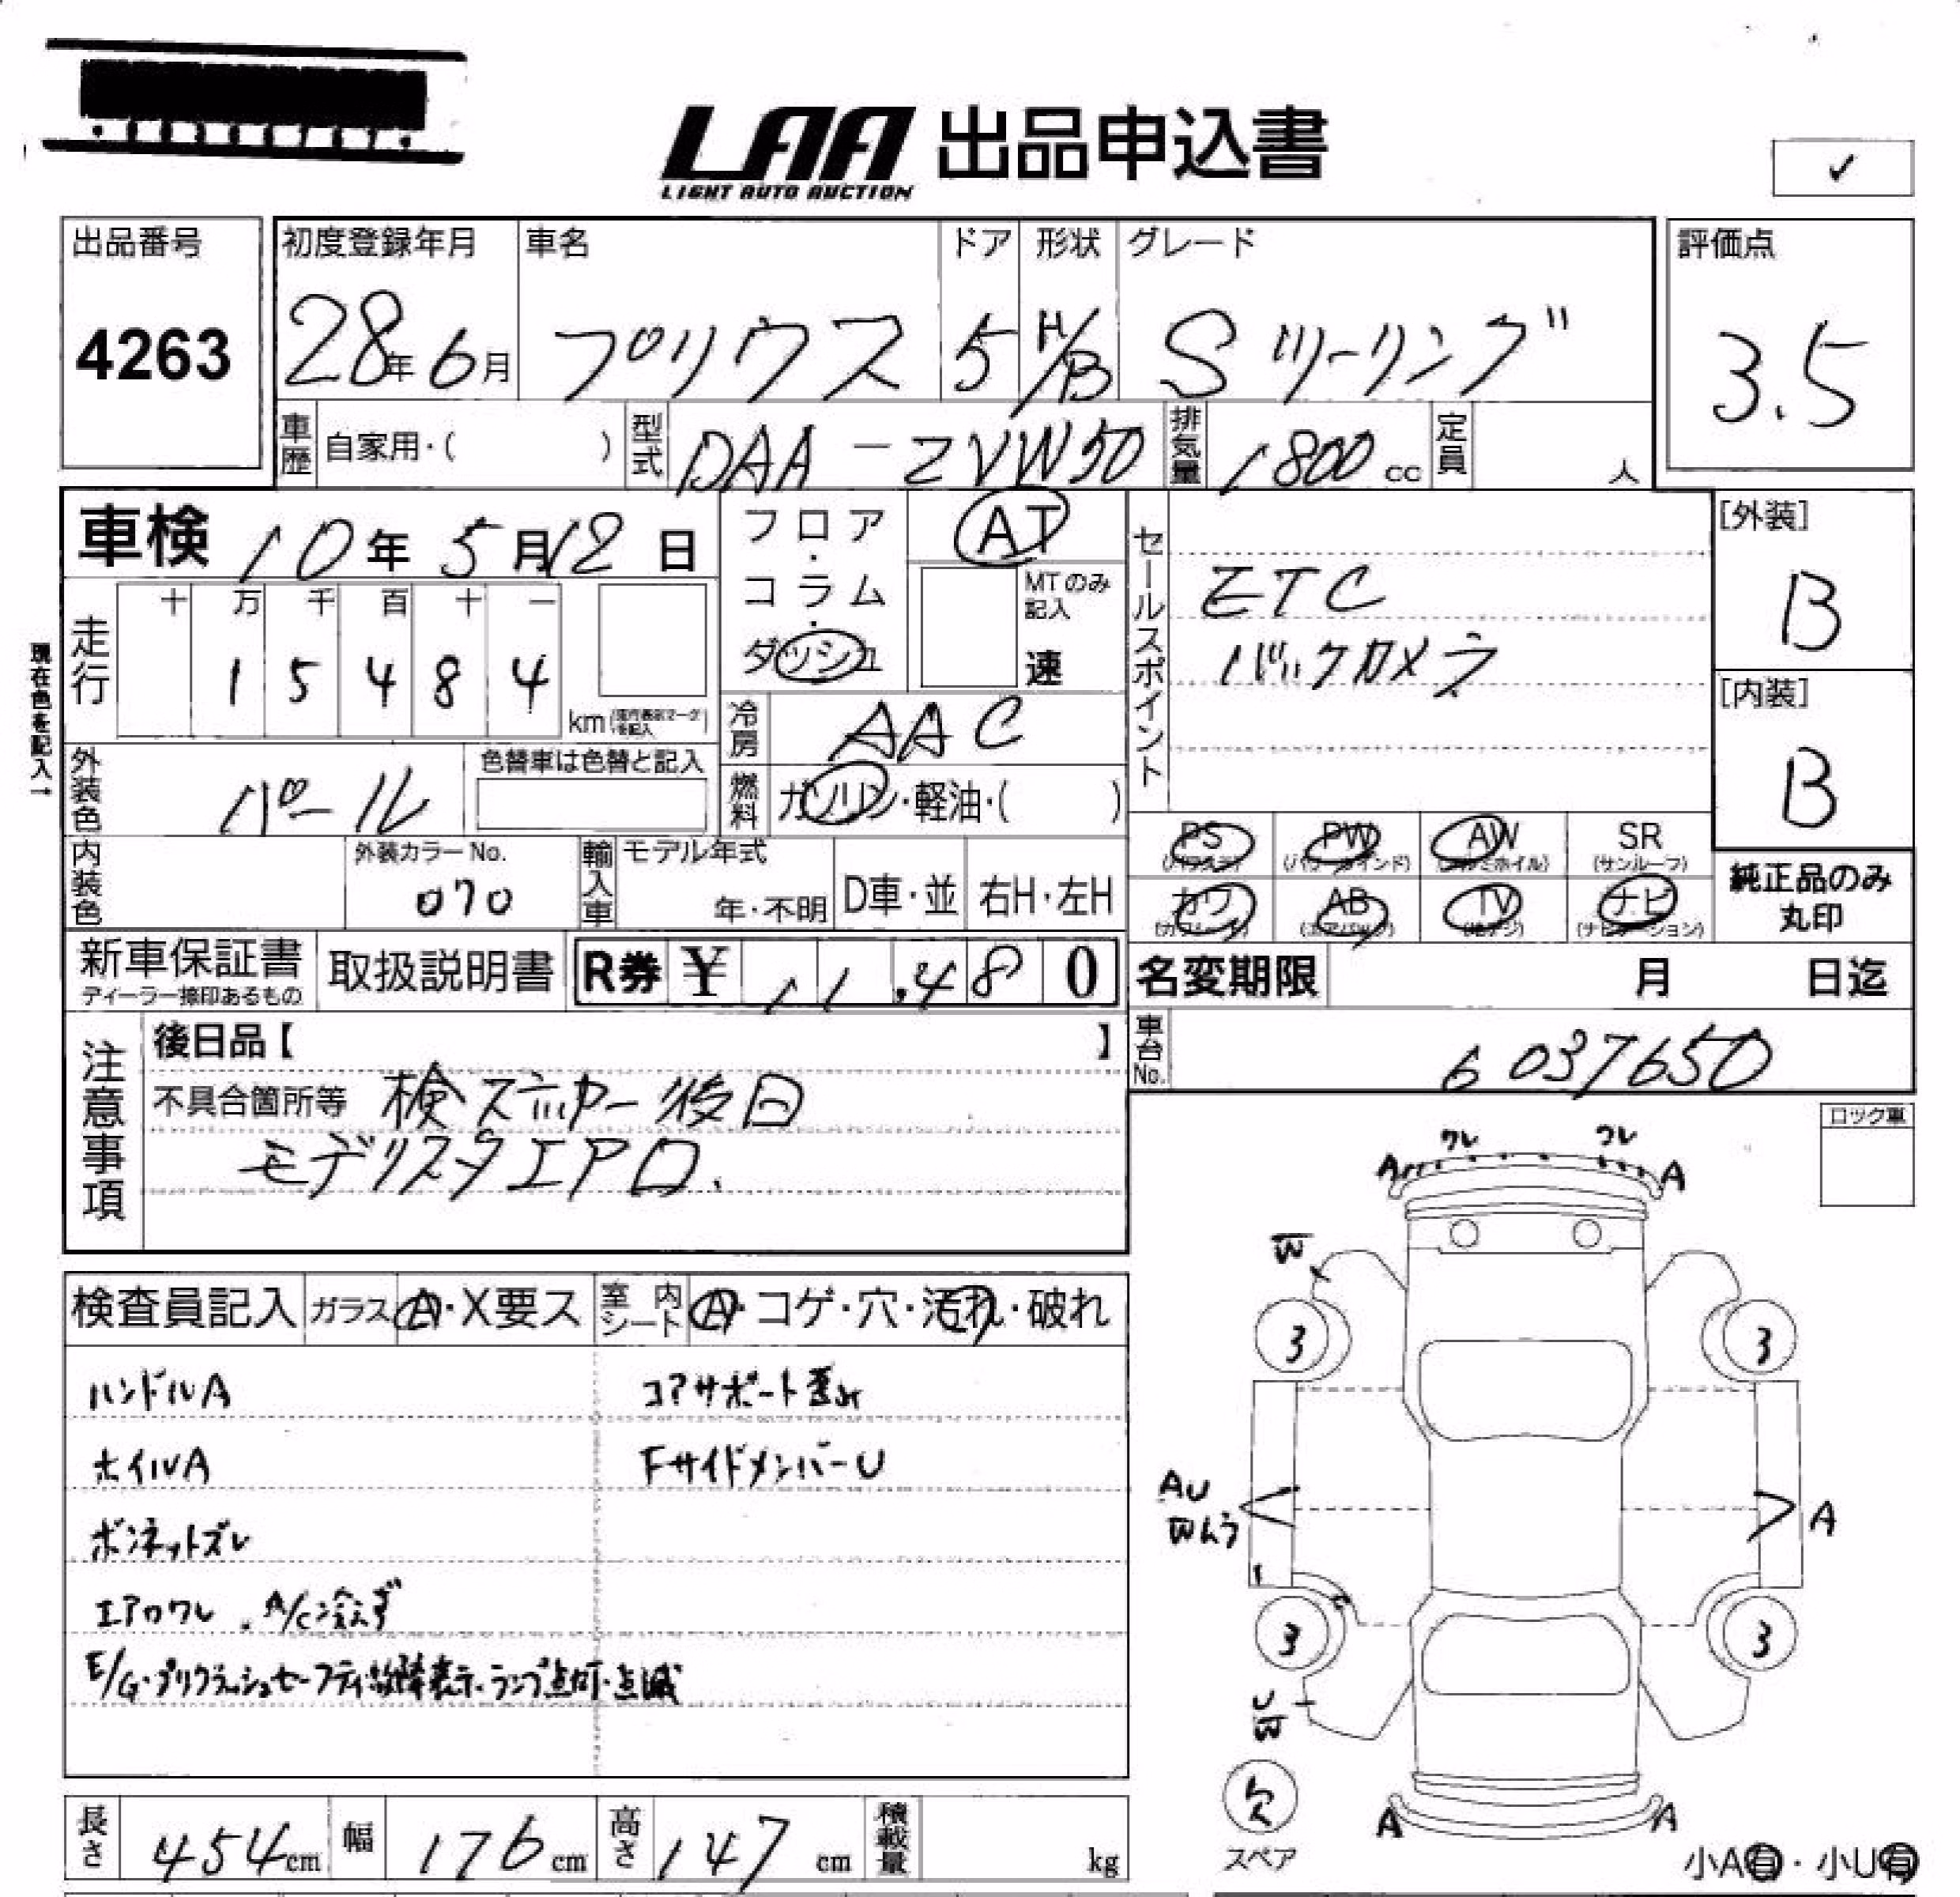 LAA 出品申込書
LIGHT AUTO AUCTION
✓
出品番号
4263
初度登録年月
28年6月
車名
プリウス
ドア
5
形状
H/B
グレード
Sツーリング
評価点
3.5
車歴 自家用・( )
型式 DAA-ZVW50
排気量 1800cc
定員 人
車検 10年5月12日
フロア・コラム・ダッシュ
AT
MTのみ記入
速
セールスポイント
ETC
バックカメラ
[外装]
B
[内装]
B
現在色を記入→
走行
十 万 千 百 十 一
1 5 4 8 4
km
冷房 AAC
燃料 ガソリン・軽油・( )
外装色 パール
色替車は色替と記入
内装色
外装カラーNo.
070
輸入車 モデル年式
年・不明
D車・並
右H・左H
PS PW AW SR
(パワステ) (パワーウインド) (アルミホイル) (サンルーフ)
カワ AB TV ナビ
(カワシート) (エアバック) (地デジ) (ナビゲーション)
純正品のみ
丸印
新車保証書
ディーラー捺印あるもの
取扱説明書
R券 ¥ 11.480
名変期限 月 日迄
車台No. 6037650
注意事項
後日品【 】
不具合箇所等 検ステッカー後日
モデリスタエアロ.
ロック車
検査員記入
ガラス A・X要ス
室内シート A・コゲ・穴・汚れ・破れ
ハンドルA
コアサポート歪み
ホイルA
FサイドメンバーU
ボンネットズレ
エアロワレ . A/C冷えず
E/G・プリクラッシュセーフティ故障表示・ランプ点灯・点滅
ワレ ワレ
A A
W
3 3
AU
Wムラ
A
3 3
U
W
欠
スペア
A A
小A有・小U有
長さ 454cm
幅 176cm
高さ 147cm
積載量 kg